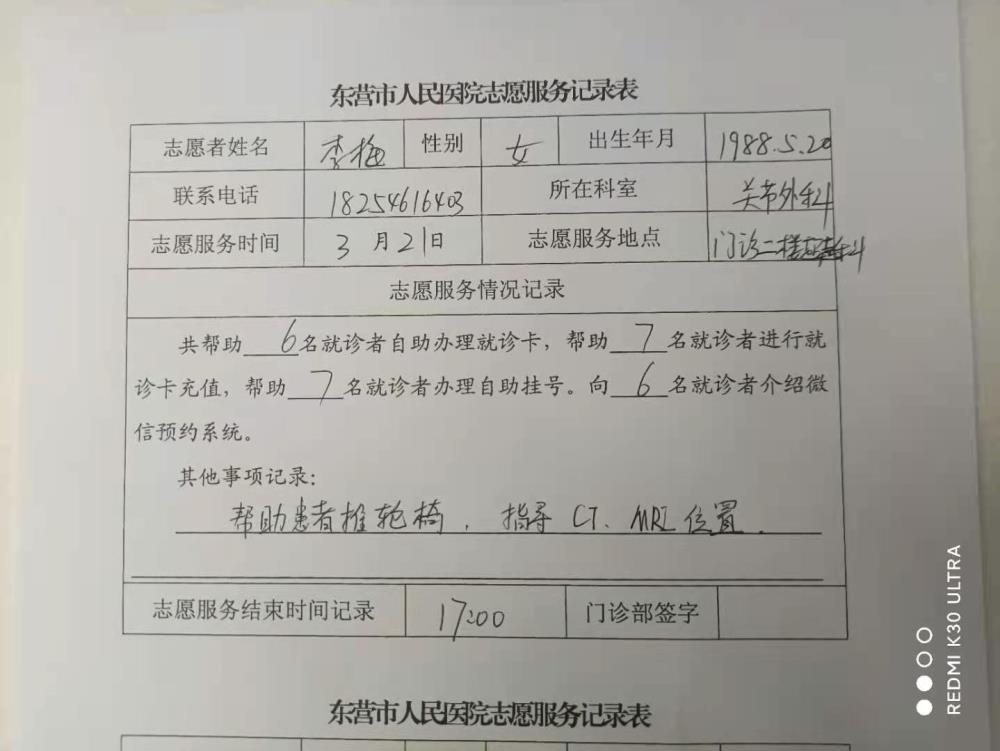 东营市人民医院志愿服务记录表
志愿者姓名 李梅 性别 女 出生年月 1988.5.20
联系电话 18254616403 所在科室 关节外科
志愿服务时间 3月21日 志愿服务地点 门诊二楼
志愿服务情况记录
共帮助6名就诊者自助办理就诊卡，帮助7名就诊者进行就
诊卡充值，帮助7名就诊者办理自助挂号。向6名就诊者介绍微
信预约系统。
其他事项记录：
帮助患者推轮椅，指导CT、MRI位置.
志愿服务结束时间记录 17:00 门诊部签字
东营市人民医院志愿服务记录表
REDMI K30 ULTRA